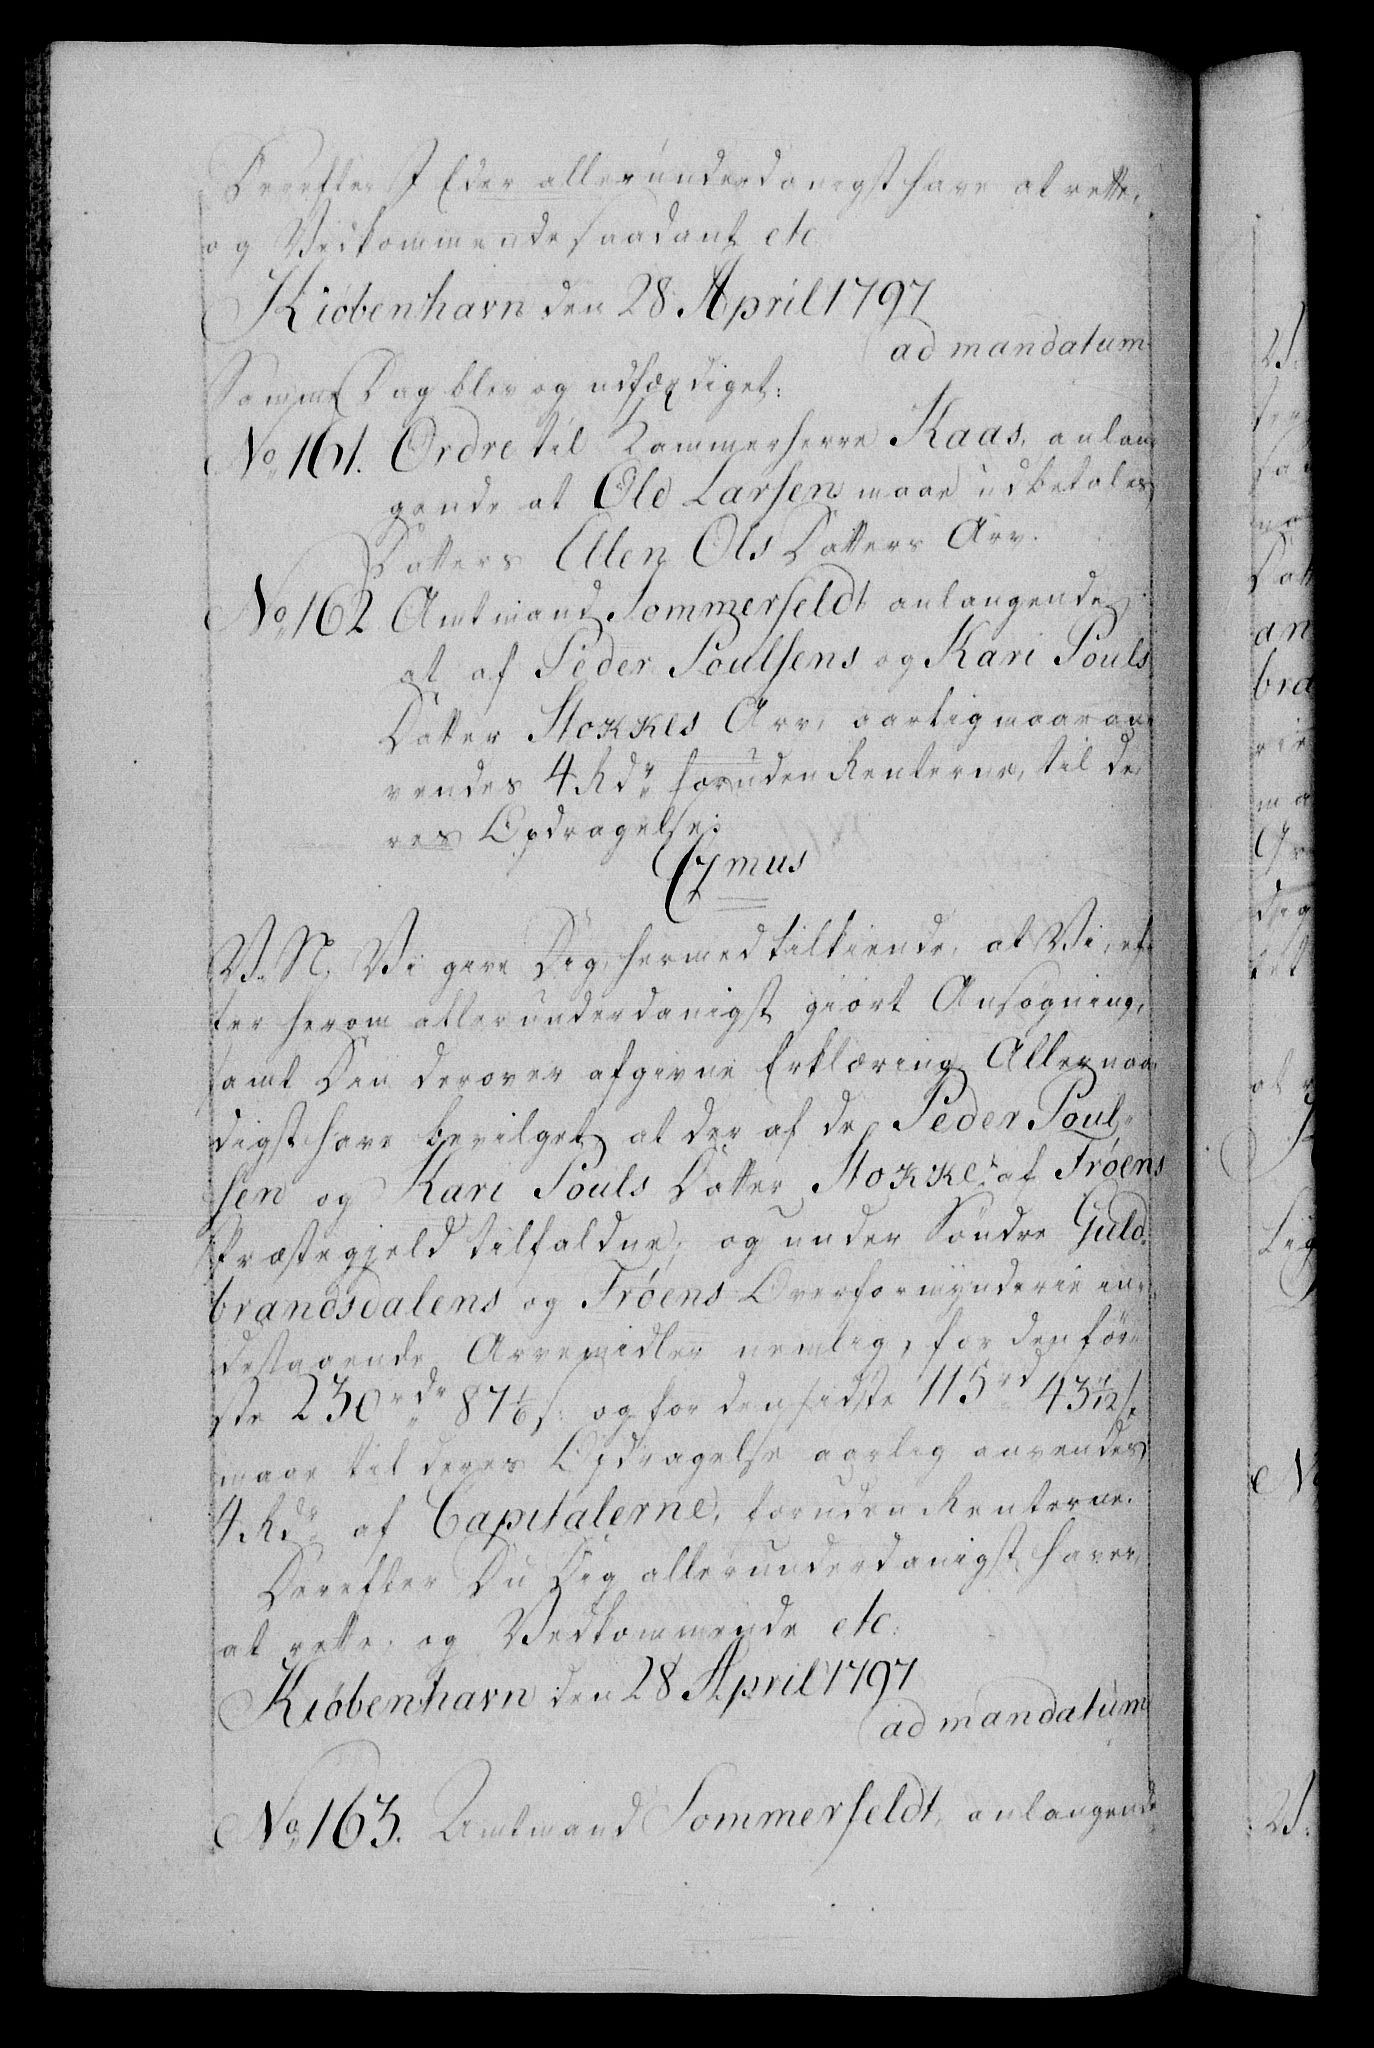 Derefter I Eder allerunderdanigst have at rette,
og Vedkommende saadant etc
Kiøbenhavn den 28 April 1797
ad mandatum
Samme Dag blev og udfærdiget:
No 161. Ordre til Kammerherre Kaas, anlan-
gende at Ole Larsen maae udbetales
Datters Ellen Ols Datters Arv.
No 162 Amtmand Sommerfeldt anlangende
at af Peder Poulsens og Kari Pouls
Datter Stokkes Arv, aarlig maae an-
vendes 4 Rdr foruden Renterne, til de-
res Opdragelse.
V. N. Vi give Dig hermed tilkiende, at Vi, ef-
ter herom allerunderdanigst giort Ansøgning,
samt Din derover afgivne Erklæring Allernaa-
digst have bevilget at der af de Peder Poul-
sen og Kari Pouls Datter Stokke af Frøens
Præstegjeld tilfaldne, og under Søndre Guld-
brandsdalens og Frøens Overformynderie in-
destaaende Arvemidler nemlig, for den før-
ste 230 rdr 87 1/6 s. og for den sidste 115 rd 43 7/12 s.
maae til deres Opdragelse aarlig anvendes
4 Rdr af Capitalerne, foruden Renterne.
Derefter Du Dig allerunderdanigst haver
at rette, og Vedkommende etc.
Kiøbenhavn den 28 April 1797
ad mandatum
No 163. Amtmand Sommerfeldt, anlangende